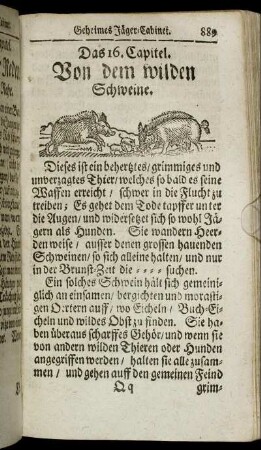 Geheimes Jäger-Cabinet. 889
Das 16. Capitel.
Von dem wilden
Schweine.
Dieses ist ein behertztes/grimmiges und
unverzagtes Thier/welches so bald es seine
Waffen erreicht / schwer in die Flucht zu
treiben; Es gehet dem Tode tapffer unter
die Augen/ und widersetzet sich so wohl Jä-
gern als Hunden. Sie wandern Heer-
den weise / ausser denen grossen hauenden
Schweinen/ so sich alleine halten/ und nur
in der Brunst-Zeit die ⸗⸗⸗⸗ suchen.
Ein solches Schwein hält sich gemeinig-
lich an einsamen/ bergichten und morasti-
gen Oertern auff/ wo Eicheln/ Buch-Ei-
cheln und wildes Obst zu finden. Sie ha-
ben überaus scharffes Gehör/ und wenn sie
von andern wilden Thieren oder Hunden
angegriffen werden/ halten sie alle zusam-
men / und gehen auff den gemeinen Feind
Q q grim-